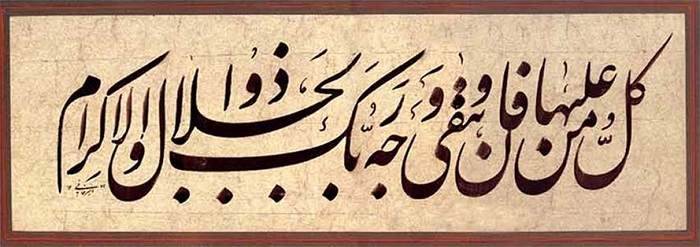 كل من عليها فان و يبقى وجه ربك ذوا الجلال والاكرام